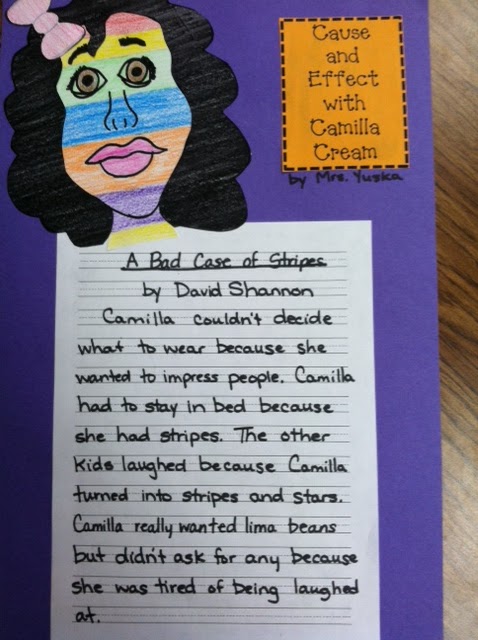 Cause
and
Effect
with
Camilla
Cream
by Mrs. Yuska
A Bad Case of Stripes
by David Shannon
Camilla couldn't decide
what to wear because she
wanted to impress people. Camilla
had to stay in bed because
she had stripes. The other
kids laughed because Camilla
turned into stripes and stars.
Camilla really wanted lima beans
but didn't ask for any because
she was tired of being laughed
at.